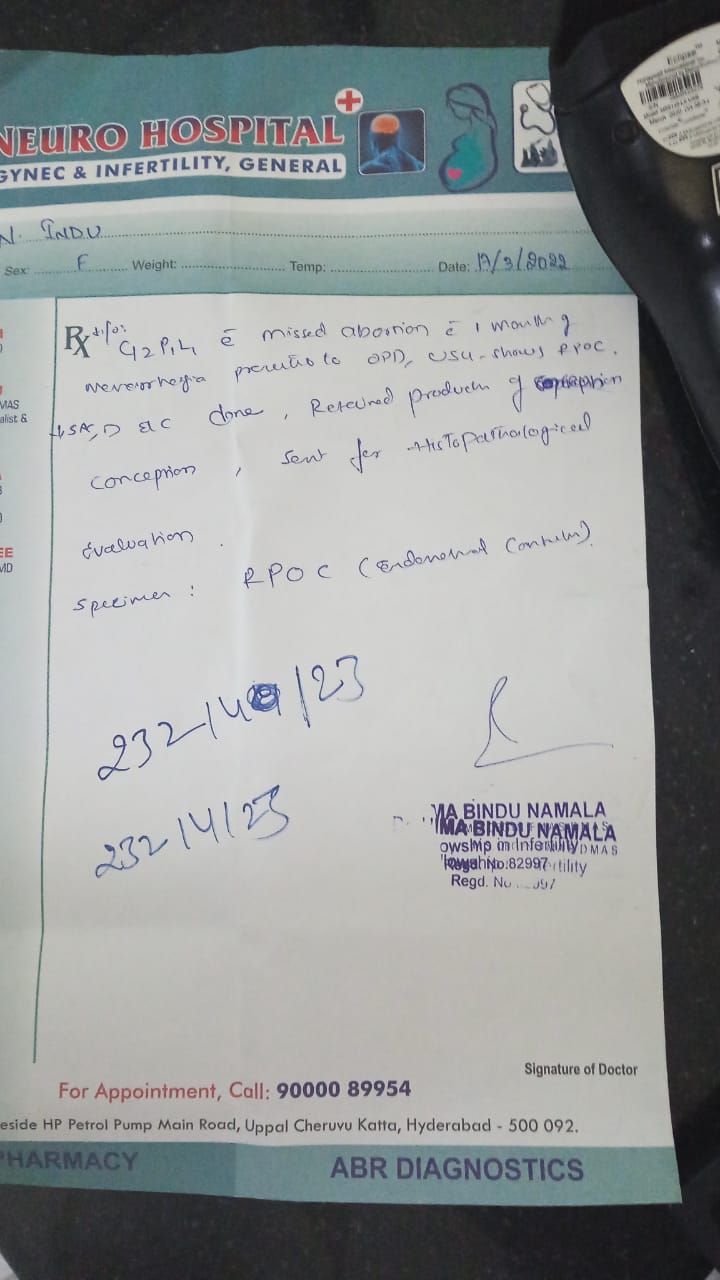 NEURO HOSPITAL
GYNEC & INFERTILITY, GENERAL
N. INDU
Sex: F Weight: Temp: Date: 17/3/2022
Rx
G2P1L1 c̄ missed abortion c̄ 1 month of
previous to OPD, USG - shows RPOC.
↓SA, D &C done, Retained products of
conception, sent for Histopathological
Evaluation.
Specimen: RPOC (Endometrial Contents).
232/4/23
MAS
alist &
EE
MD
MA BINDU NAMALA
MA BINDU NAMALA
owship in Infertility DMAS
Regd. No.82997 rtility
Regd. No
Signature of Doctor
For Appointment, Call: 90000 89954
eside HP Petrol Pump Main Road, Uppal Cheruvu Katta, Hyderabad - 500 092.
PHARMACY
ABR DIAGNOSTICS
Eclipse™